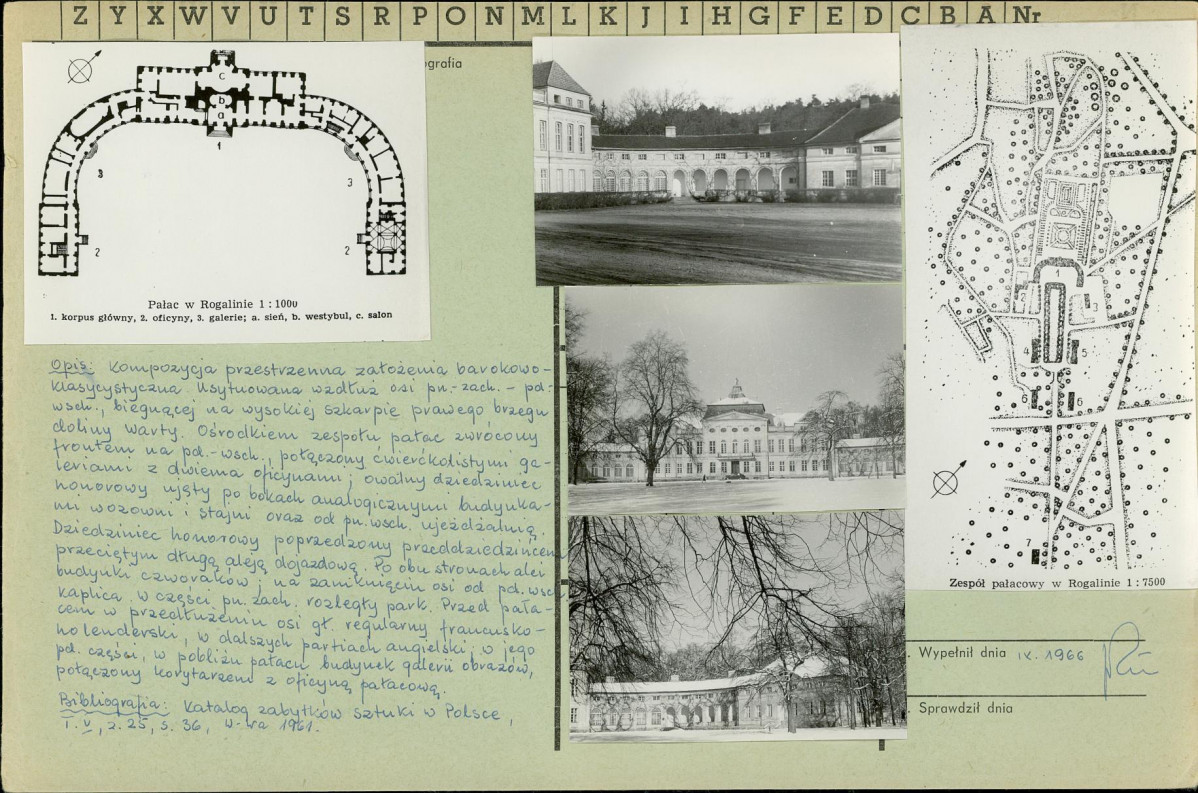 Z Y X W V U T S R P O N M L K J I H G F E D C B A Nr
ografia
c
b
a
1
3
3
2
2
Pałac w Rogalinie 1 : 1000
1. korpus główny, 2. oficyny, 3. galerie; a. sień, b. westybul, c. salon
Opis: Kompozycja przestrzenna założenia barokowo-
klasycystyczna. Usytuowana wzdłuż osi pn.-zach. – pd.-
wsch., biegnącej na wysokiej szkarpie prawego brzegu
doliny Warty. Ośrodkiem zespołu pałac zwrócony
frontem na pd.-wsch., połączony ćwierćkolistymi ga-
leriami z dwiema oficynami; owalny dziedziniec
honorowy ujęty po bokach analogicznymi budynka-
mi wozowni i stajni oraz od pn.wsch. ujeżdżalnią.
Dziedziniec honorowy poprzedzony przeddziedzińcem
przeciętym długą aleją dojazdową. Po obu stronach alei
budynki czworaków; na zamknięciu osi od pd.wsch.
kaplica. W części pn. zach. rozległy park. Przed pała-
cem w przedłużeniu osi gł. regularny francusko-
holenderski, w dalszych partiach angielski; w jego
pd. części, w pobliżu pałacu budynek galerii obrazów,
połączony korytarzem z oficyną pałacową.
Bibliografia: Katalog zabytków sztuki w Polsce,
T. V, z. 25, s. 36, W-wa 1961.
1
3
4
5
6
6
7
Zespół pałacowy w Rogalinie 1 : 7500
Wypełnił dnia IX. 1966
Sprawdził dnia